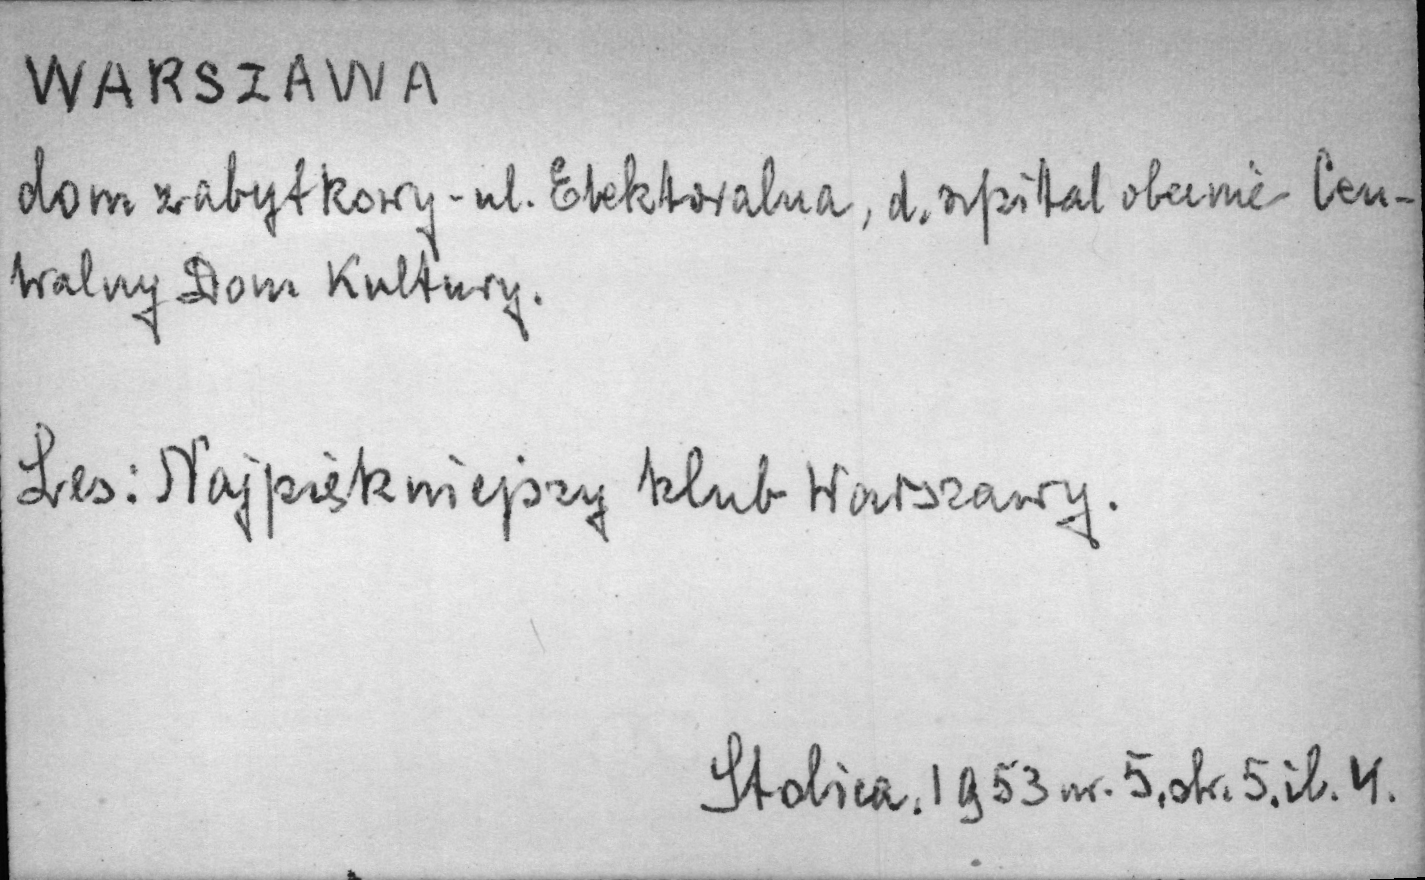 WARSZAWA
dom zabytkowy - ul. Elektoralna, d. szpital obecnie Cen-
tralny Dom Kultury.
Les: Najpiękniejszy klub Warszawy.
Stolica. 1953 nr. 5. str. 5. il. 4.